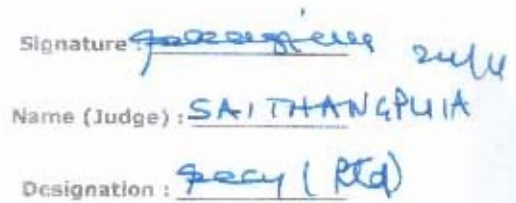 Signature : 24/4
Name (Judge) : SAITHANGPUIA
Designation : Secy (Rtd)